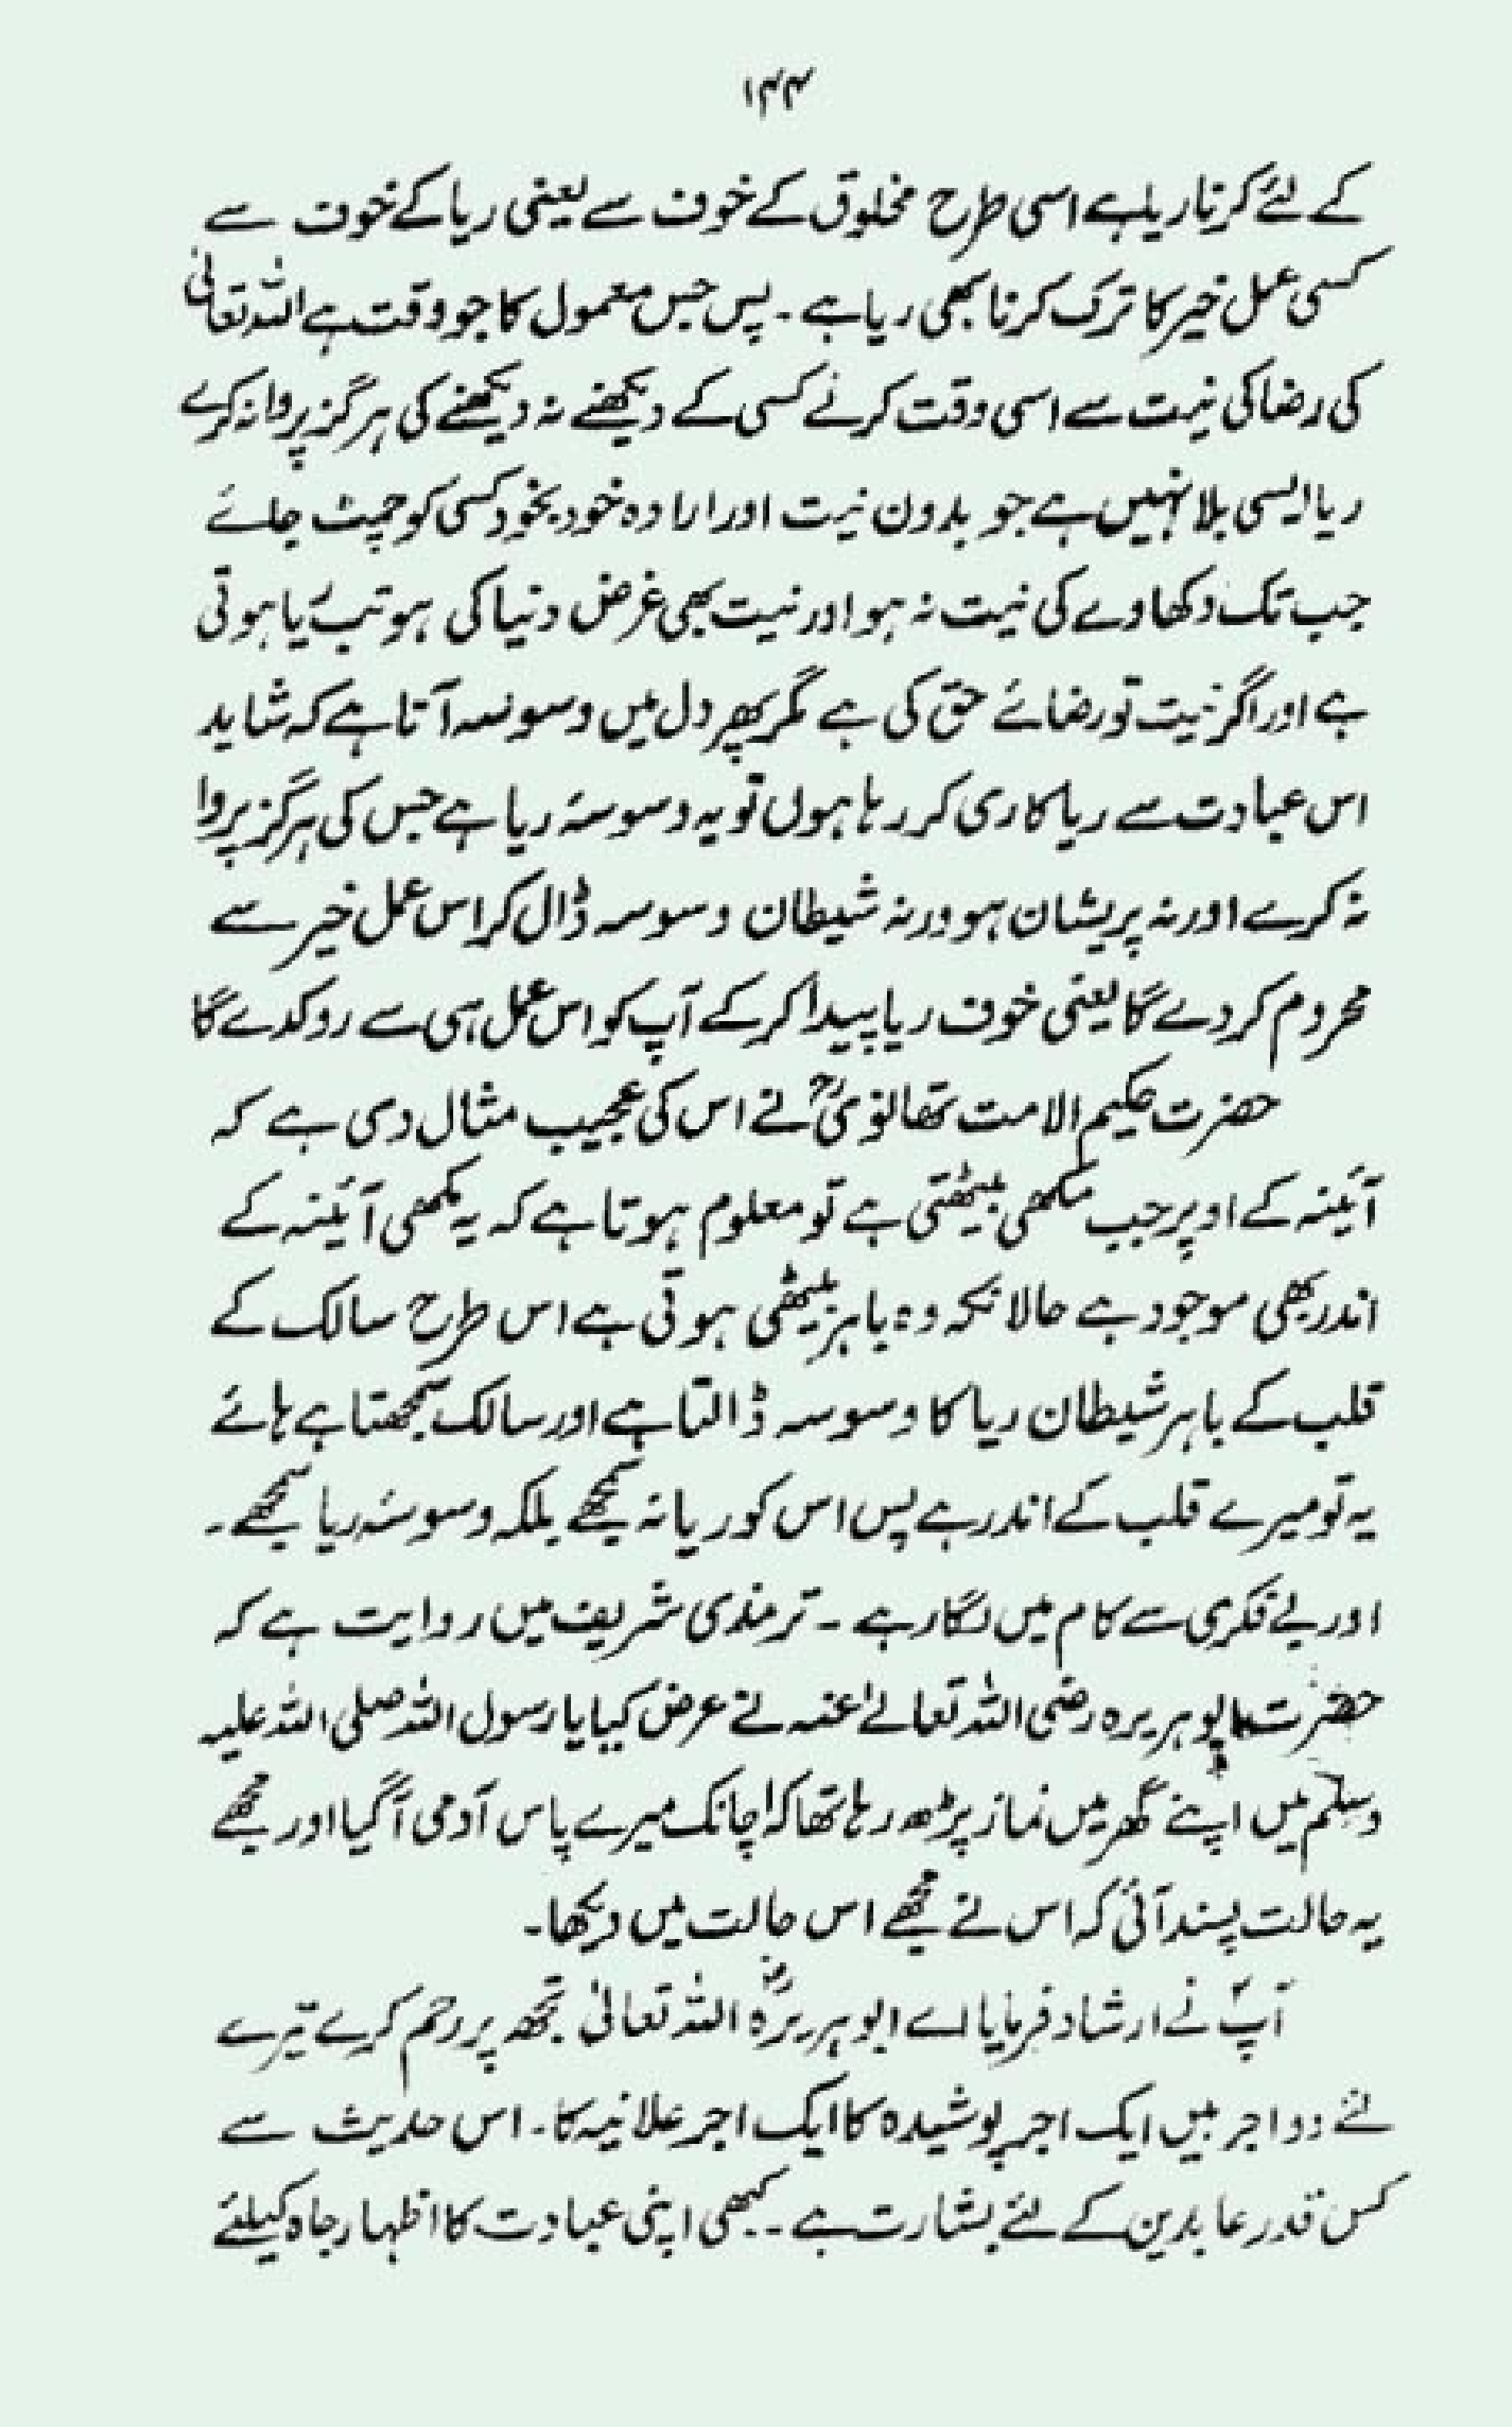 ۱۴۴
کے لئے کرنا ریا ہے اسی طرح مخلوق کے خوف سے یعنی ریا کے خوف سے
کسی عمل خیر کا ترک کرنا بھی ریا ہے ۔ پس جس معمول کا جو وقت ہے اللہ تعالیٰ
کی رضا کی نیت سے اسی وقت کرلے کسی کے دیکھنے نہ دیکھنے کی ہرگز پروا نہ کرے
ریا ایسی بلا نہیں ہے جو بدون نیت اور ارادہ خود بخود کسی کو چمٹ جائے
جب تک دکھاوے کی نیت نہ ہو اور نیت بھی غرض دنیا کی ہو تب ریا ہوتی
ہے اور اگر نیت تو رضائے حق کی ہے مگر پھر دل میں وسوسہ آتا ہے کہ شاید
اس عبادت سے ریا کاری کر رہا ہوں تو یہ وسوسۂ ریا ہے جس کی ہرگز پروا
نہ کرے اور نہ پریشان ہو ورنہ شیطان وسوسہ ڈال کر اس عمل خیر سے
محروم کر دے گا یعنی خوف ریا پیدا کر کے آپ کو اس عمل ہی سے روکدے گا
حضرت حکیم الامت تھانویؒ نے اس کی عجیب مثال دی ہے کہ
آئینہ کے اوپر جب مکھی بیٹھتی ہے تو معلوم ہوتا ہے کہ یہ مکھی آئینہ کے
اندر بھی موجود ہے حالانکہ وہ باہر بیٹھی ہوتی ہے اس طرح سالک کے
قلب کے باہر شیطان ریا کا وسوسہ ڈالتا ہے اور سالک سمجھتا ہے ہائے
یہ تو میرے قلب کے اندر ہے پس اس کو ریا نہ سمجھے بلکہ وسوسۂ ریا سمجھے ۔
اور بے فکری سے کام میں لگا رہے ۔ ترمذی شریف میں روایت ہے کہ
حضرت ابو ہریرہ رضی اللہ تعالےٰ عنہ نے عرض کیا یا رسول اللہ صلی اللہ علیہ
وسلم میں اپنے گھر میں نماز پڑھ رہا تھا کہ اچانک میرے پاس آدمی آگیا اور مجھے
یہ حالت پسند آئی کہ اس نے مجھے اس حالت میں دیکھا۔
آپؐ نے ارشاد فرمایا اے ابو ہریرہؓ اللہ تعالیٰ تجھ پر رحم کرے تیرے
لئے دو اجر ہیں ایک اجر پوشیدہ کا ایک اجر علانیہ کا۔ اس حدیث سے
کس قدر عابدین کے لئے بشارت ہے ۔ کبھی اپنی عبادت کا اظہار جاہ کیلئے